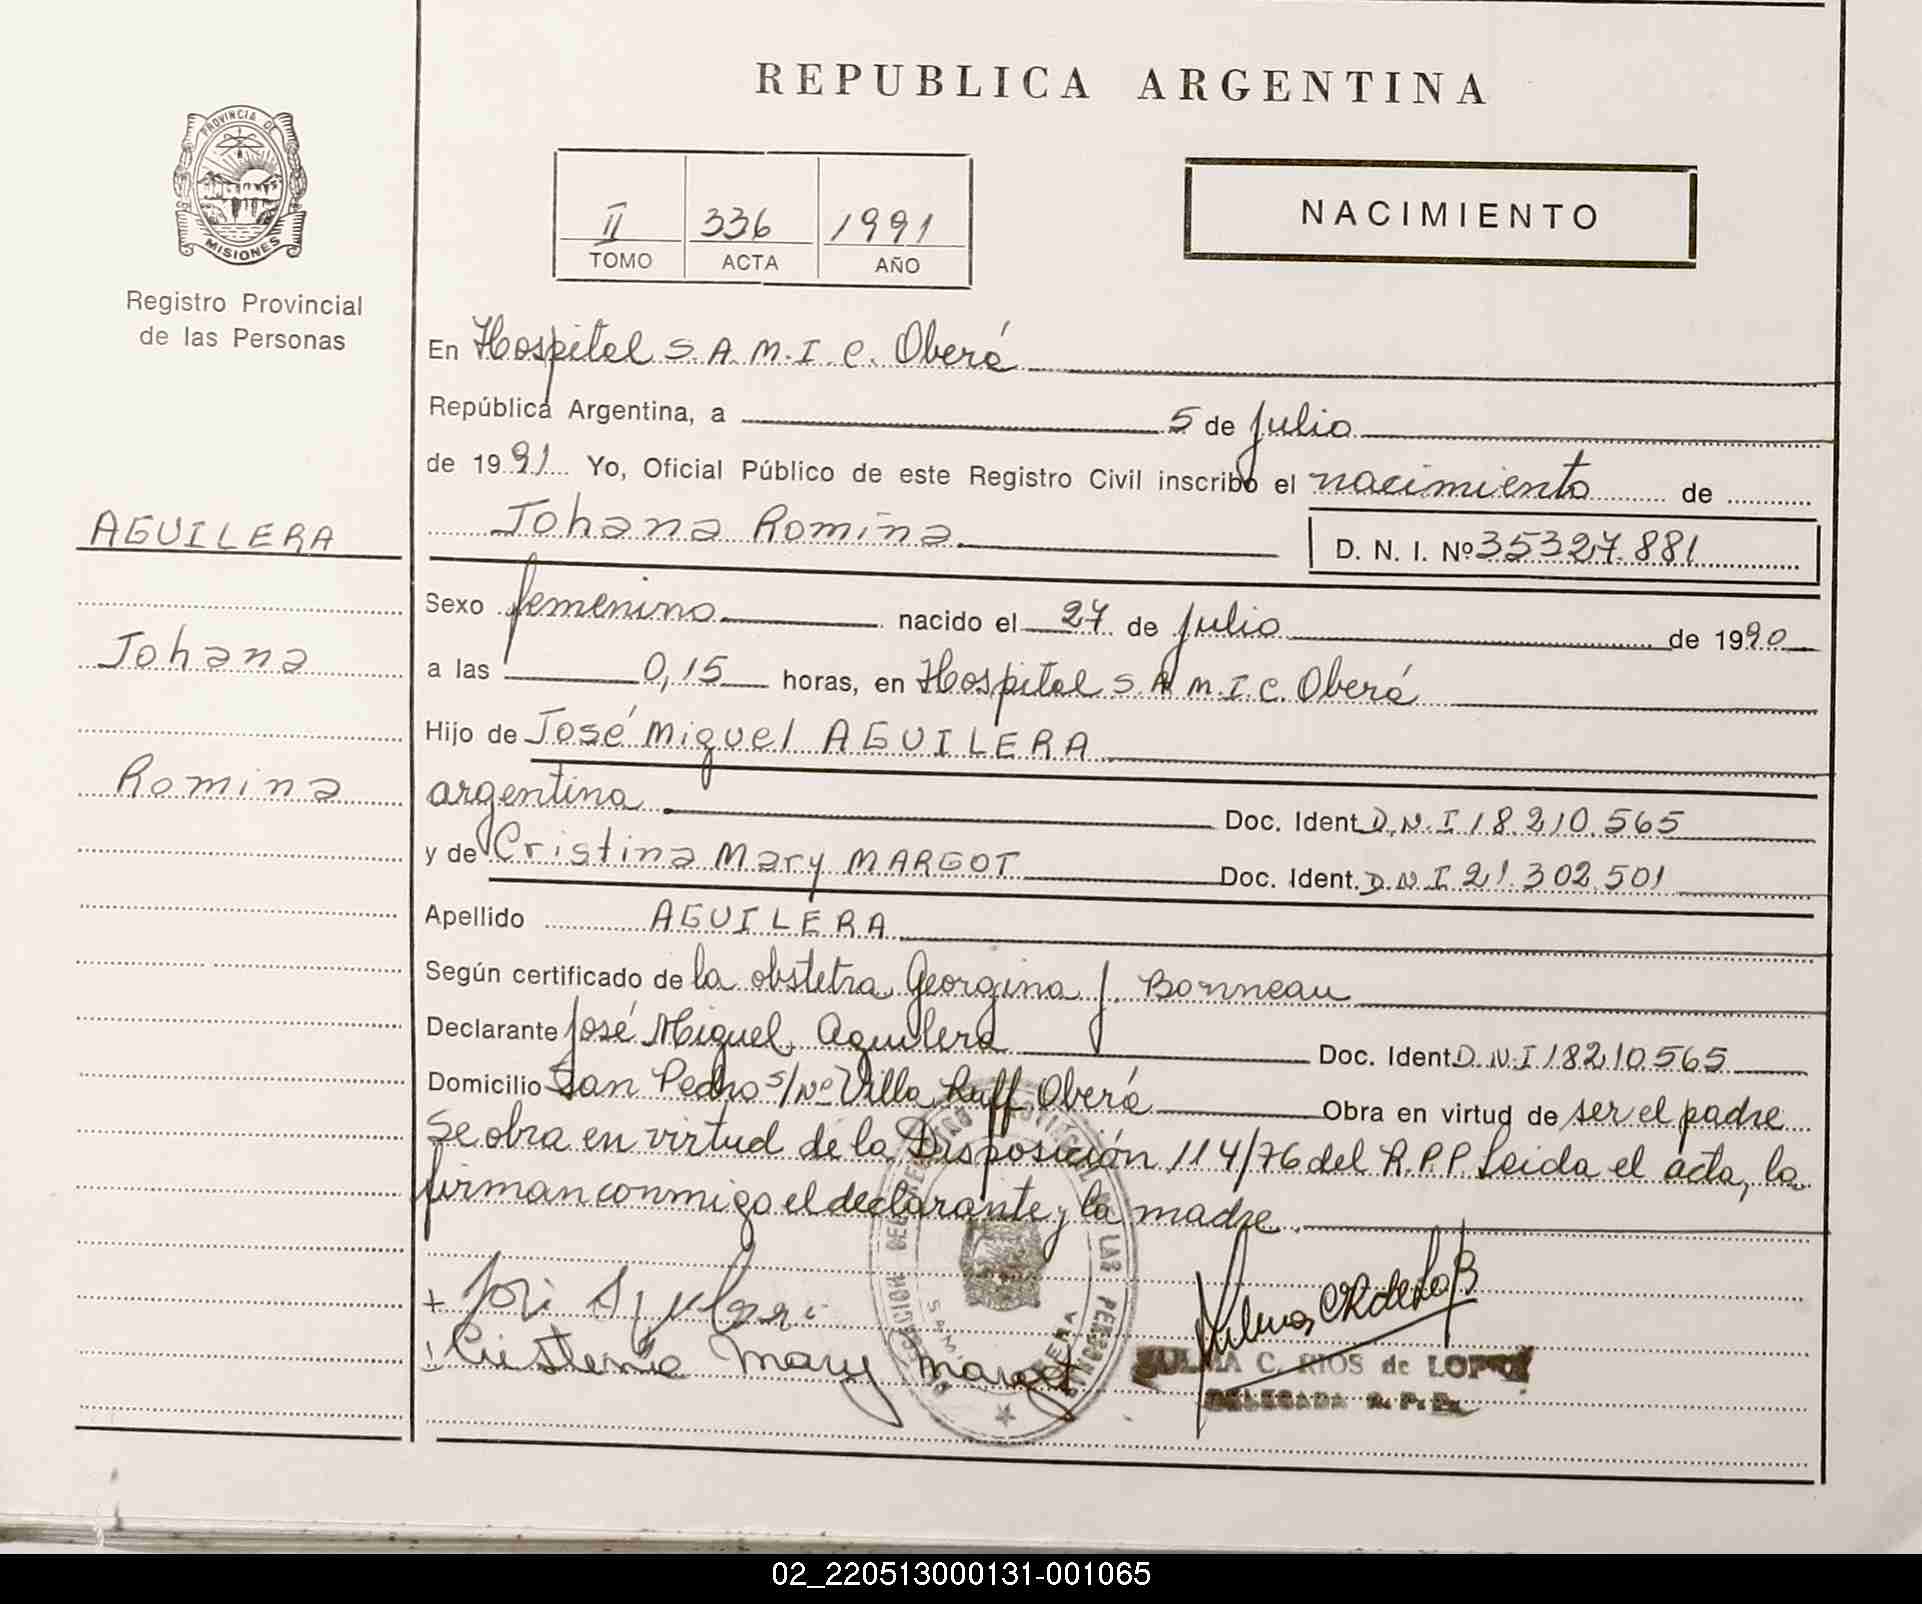 REPUBLICA ARGENTINA
PROVINCIA DE
MISIONES
Registro Provincial
de las Personas
II 336 1991
TOMO ACTA AÑO
NACIMIENTO
En Hospital S.A.M.I.C. Oberá
República Argentina, a 5 de julio
de 1991 Yo, Oficial Público de este Registro Civil inscribo el nacimiento de
Johana Romina
D. N. I. Nº 35327.881
AGUILERA
Johana
Romina
Sexo femenino nacido el 27 de julio de 1990
a las 0,15 horas, en Hospital S.A.M.I.C. Oberá
Hijo de José Miguel AGUILERA
argentina Doc. Ident D.N.I 18210.565
y de Cristina Mary MARGOT Doc. Ident. D.N.I 21.302.501
Apellido AGUILERA
Según certificado de la obstetra Georgina J. Bonneau
Declarante José Miguel Aguilera Doc. Ident D.N.I 18210.565
Domicilio San Pedro s/Nº Villa Ruff Oberá Obra en virtud de ser el padre
Se obra en virtud de la Disposición 114/76 del R.P.P. Leida el acta, la
firman conmigo el declarante y la madre.
Mary Margot
ZULMA C. RIOS de LOPEZ
DELEGADA R. P. P.
02_220513000131-001065